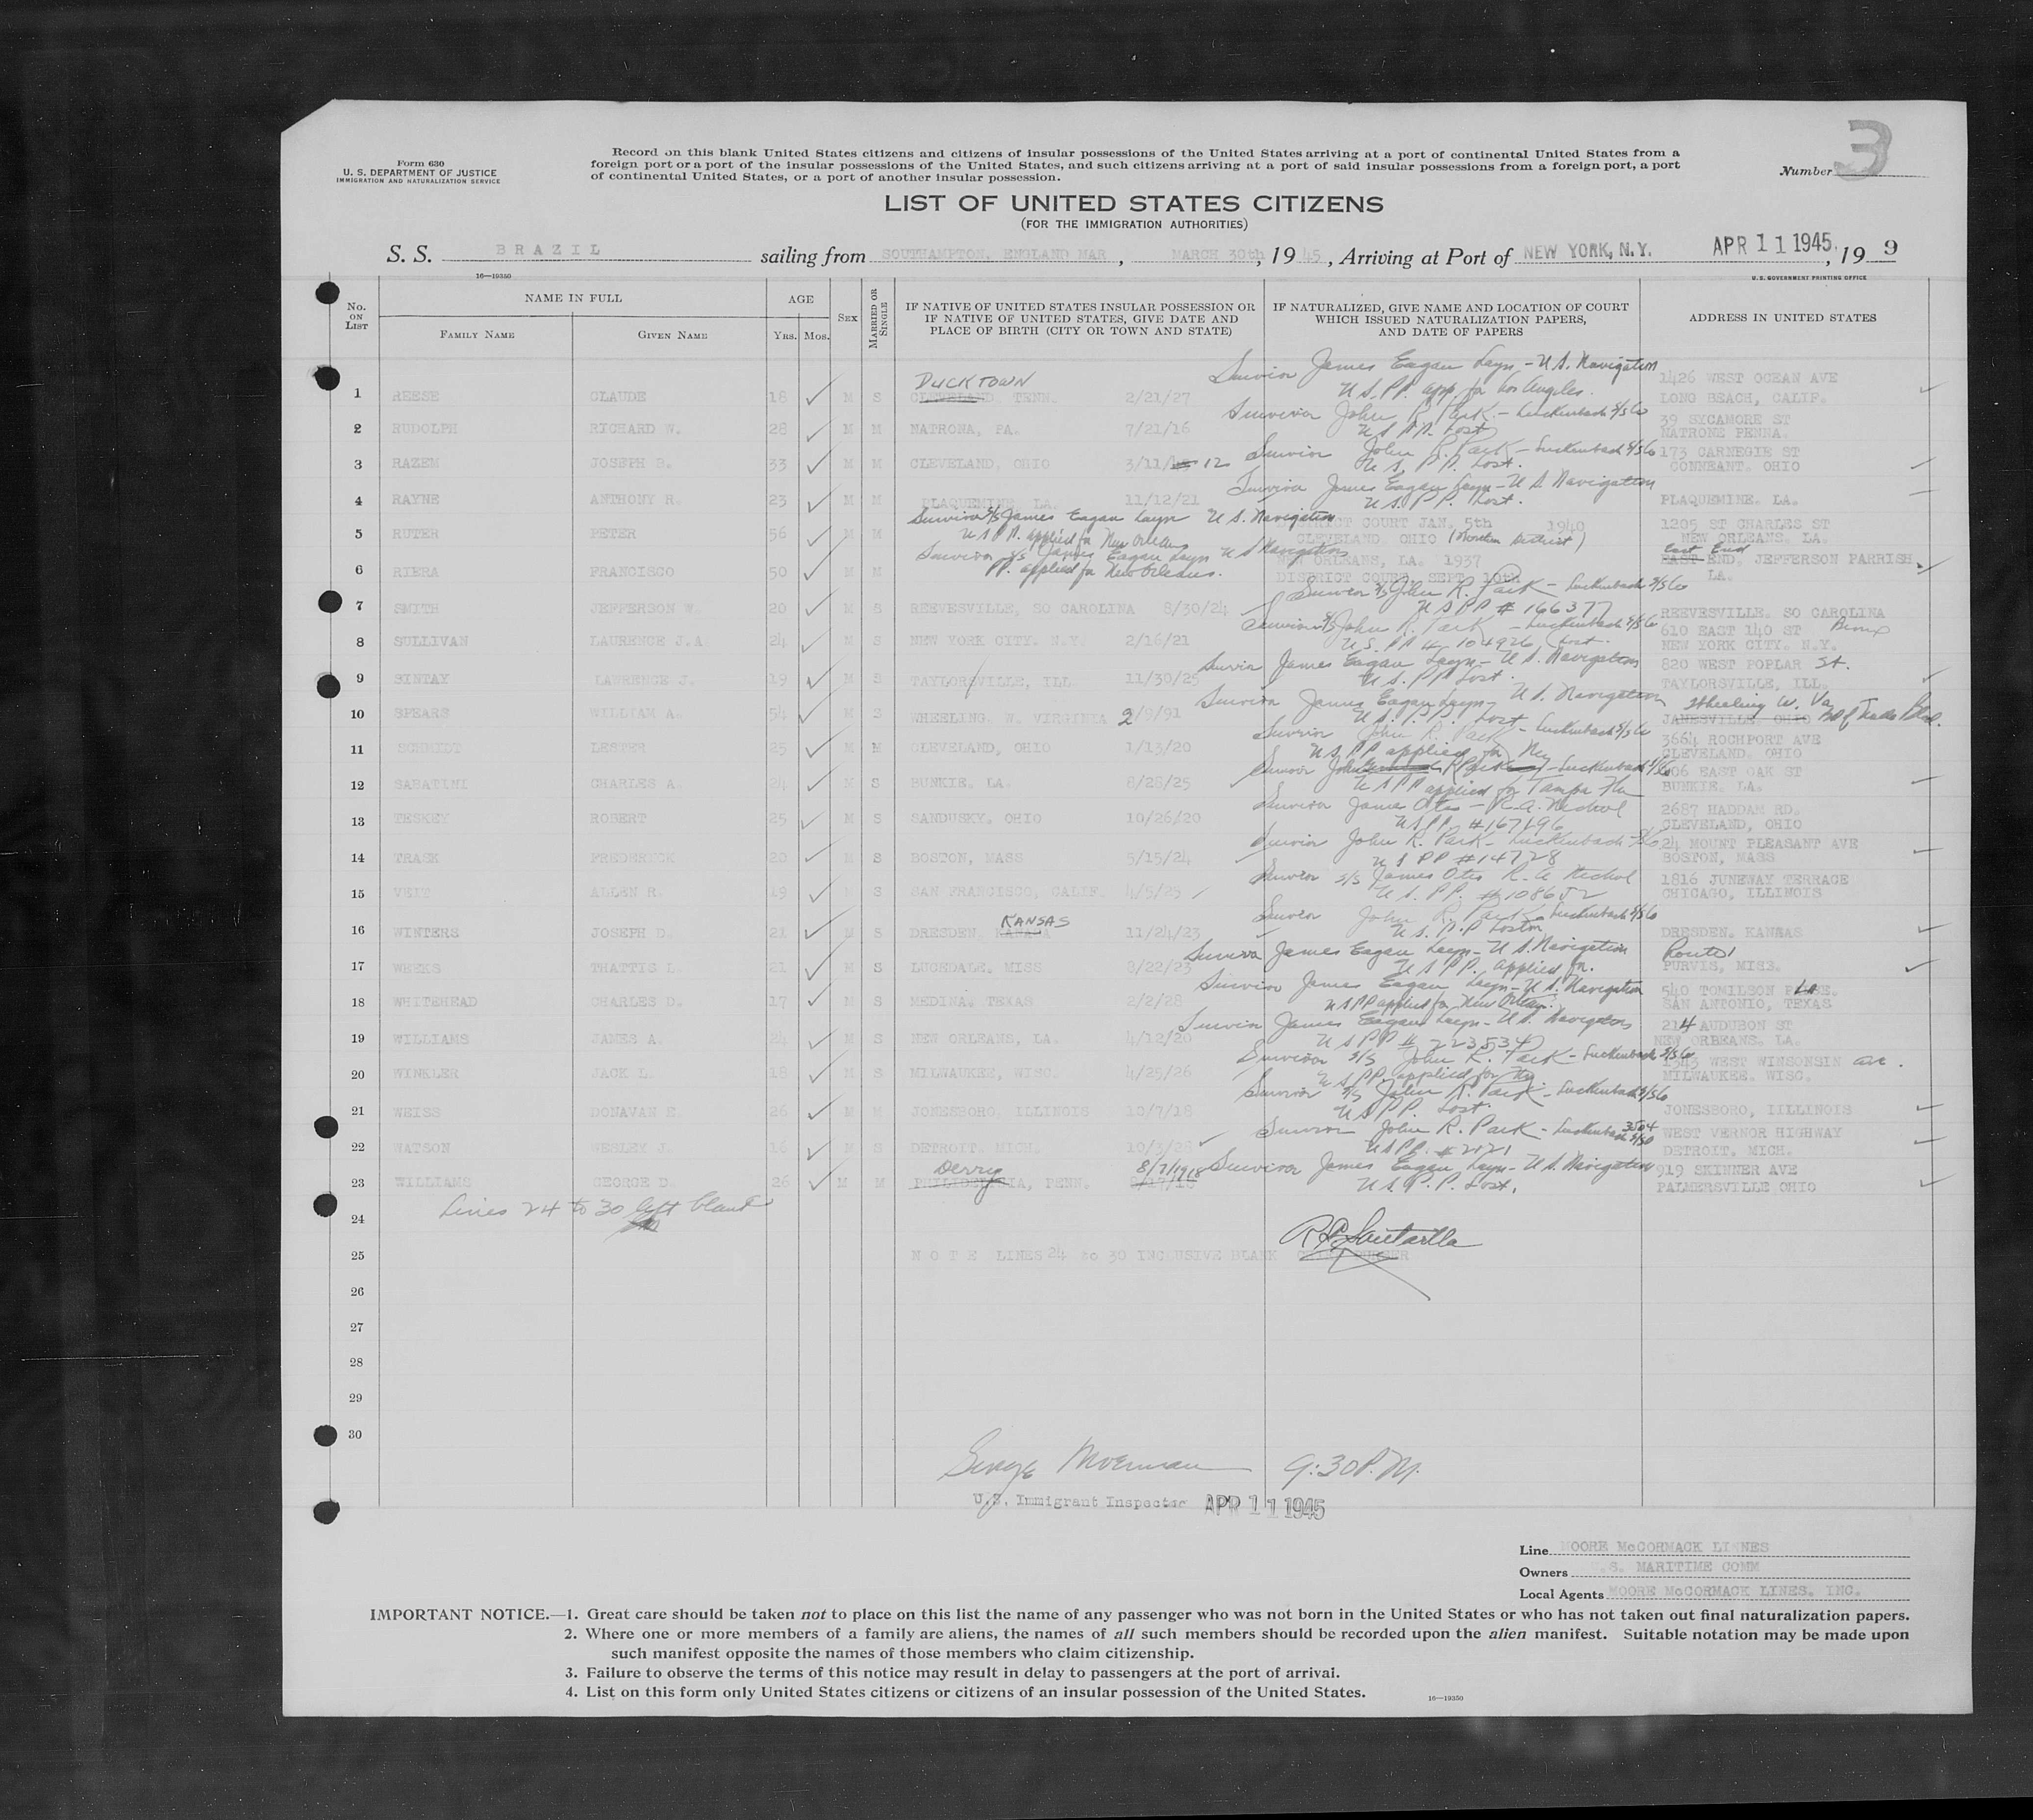 3
Form 630
U. S. DEPARTMENT OF JUSTICE
IMMIGRATION AND NATURALIZATION SERVICE
Record on this blank United States citizens and citizens of insular possessions of the United States arriving at a port of continental United States from a
foreign port or a port of the insular possessions of the United States, and such citizens arriving at a port of said insular possessions from a foreign port, a port
of continental United States, or a port of another insular possession.
Number
LIST OF UNITED STATES CITIZENS
(FOR THE IMMIGRATION AUTHORITIES)
S. S. BRAZIL sailing from SOUTHAMPTON, ENGLAND MAR , MARCH 30th , 1945 , Arriving at Port of NEW YORK, N.Y. APR 11 1945 , 19 9
16—19350
U. S. GOVERNMENT PRINTING OFFICE
No. ON LIST
NAME IN FULL
FAMILY NAME
GIVEN NAME
AGE
Yrs. Mos.
SEX
MARRIED OR SINGLE
IF NATIVE OF UNITED STATES INSULAR POSSESSION OR
IF NATIVE OF UNITED STATES, GIVE DATE AND
PLACE OF BIRTH (CITY OR TOWN AND STATE)
IF NATURALIZED, GIVE NAME AND LOCATION OF COURT
WHICH ISSUED NATURALIZATION PAPERS,
AND DATE OF PAPERS
ADDRESS IN UNITED STATES
DUCKTOWN
Survivor James Eagan Layn - U.S. Navigation
1426 WEST OCEAN AVE
1 REESE CLAUDE 18 M S CLEVELAND, TENN. 2/21/27 U.S.PP. app. for Los Angeles. LONG BEACH, CALIF.
Survivor John R. Park - Luckenbach S/S Co
39 SYCAMORE ST
2 RUDOLPH RICHARD W. 28 M M NATRONA, PA. 7/21/16 U S PP. Lost NATRONE PENNA.
Survivor John R. Park - Luckenbach S/S Co
173 CARNEGIE ST
3 RAZEM JOSEPH B. 33 M M CLEVELAND, OHIO 3/11/ 12 U.S. P.P. Lost. CONNEANT. OHIO
Survivor James Eagan Layn - U.S. Navigation
4 RAYNE ANTHONY R. 23 M M PLAQUEMINE, LA. 11/12/21 U.S.P.P. Lost. PLAQUEMINE. LA.
Survivor S/S James Eagan Layn U.S. Navigation
DISTRICT COURT JAN. 5th 1940
1205 ST CHARLES ST
5 RUTER PETER 56 M M U S P.P. applied for New Orleans CLEVELAND, OHIO (Northern District) NEW ORLEANS, LA.
Survivor S/S James Eagan Layn U S Navigation
NEW ORLEANS, LA. 1937
East End
EAST END, JEFFERSON PARRISH,
6 RIERA FRANCISCO 50 M M PP. applied for New Orleans. DISTRICT COURT SEPT. 10th LA.
Survivor S/S John R. Park - Luckenbach S/S Co
7 SMITH JEFFERSON W. 20 M S REEVESVILLE, SO CAROLINA 8/30/24 U S PP # 166377 REEVESVILLE. SO CAROLINA
Survivor S/S John R. Park - Luckenbach S/S Co
610 EAST 140 ST Bronx
8 SULLIVAN LAURENCE J.A. 24 M S NEW YORK CITY. N.Y. 2/16/21 U.S. PP # 104926 Lost. NEW YORK CITY. N.Y.
Survivor James Eagan Layn - U.S. Navigation
820 WEST POPLAR St.
9 SINTAY LAWRENCE J. 19 M S TAYLORSVILLE, ILL 11/30/25 U.S. PP Lost. TAYLORSVILLE, ILL.
Survivor James Eagan Layn - U.S. Navigation
Wheeling W. Va
10 SPEARS WILLIAM A. 54 M S WHEELING, W. VIRGINIA 2/9/91 U.S. P.P. Lost JANESVILLE, OHIO
Survivor John R. Park - Luckenbach S/S Co
3664 ROCHPORT AVE
11 SCHMIDT LESTER 25 M M CLEVELAND, OHIO 1/13/20 U S PP applied for Ny CLEVELAND. OHIO
Survivor John R Park - Luckenbach S/S Co
606 EAST OAK ST
12 SABATINI CHARLES A. 24 M S BUNKIE, LA. 8/28/25 U S PP applied for Tampa Fla BUNKIE, LA.
Survivor James Otis - R.A. Nichol
2687 HADDAM RD.
13 TESKEY ROBERT 25 M S SANDUSKY, OHIO 10/26/20 U S PP. #167196 CLEVELAND, OHIO
Survivor John R. Park - Luckenbach S/S Co
24 MOUNT PLEASANT AVE
14 TRASK FREDERICK 20 M S BOSTON, MASS 5/15/24 U S PP #14728 BOSTON, MASS
Survivor S/S James Otis R. A Nichol
1816 JUNEWAY TERRACE
15 VEIT ALLEN R. 49 M S SAN FRANCISCO, CALIF. 4/5/23 U.S. PP. #108652 CHICAGO, ILLINOIS
KANSAS
Survivor John R. Park - Luckenbach S/S Co
16 WINTERS JOSEPH D. 21 M S DRESDEN, KANADA 11/24/23 U.S. P.P Lost DRESDEN. KANSAS
Survivor James Eagan Layn - U.S. Navigation
Route 1
17 WEEKS THATTIS L. 21 M S LUCEDALE, MISS 8/22/23 U S PP. applied for. PURVIS, MISS.
Survivor James Eagan Layn - U.S. Navigation
540 TOMILSON
18 WHITEHEAD CHARLES D. 17 M S MEDINA, TEXAS 2/2/28 U S PP applied for New Orleans. SAN ANTONIO, TEXAS
Survivor James Eagan Layn - U.S. Navigation
214 AUDUBON ST
19 WILLIAMS JAMES A. 24 M S NEW ORLEANS, LA. 4/12/20 U S PP # 223534 NEW ORBEANS. LA.
Survivor S/S John R. Park - Luckenbach S/S Co
1343 WEST WINSONSIN ave.
20 WINKLER JACK L. 18 M S MILWAUKEE, WISC. 4/25/26 U S PP. applied for Ny. MILWAUKEE. WISC.
Survivor S/S John R. Park - Luckenbach S/S Co
21 WEISS DONAVAN E. 26 M M JONESBORO, ILLINOIS 10/7/18 U S P.P. Lost. JONESBORO, IILLINOIS
Survivor John R. Park - Luckenbach S/S Co
3504 WEST VERNOR HIGHWAY
22 WATSON WESLEY J. 16 M S DETROIT. MICH. 10/3/28 U S PP. # 2121 DETROIT. MICH.
Derry 8/7/1918
Survivor James Eagan Layn - U.S. Navigation
919 SKINNER AVE
23 WILLIAMS GEORGE D. 26 M M PHILIDELPHIA, PENN. 8/17/18 U.S. P. P. Lost. PALMERSVILLE OHIO
Lines 24 to 30 left blank
24
25 NOTE LINES 24 to 30 INCLUSIVE BLANK
26
27
28
29
30
George Moerman 9:30 P.M.
U.S. Immigrant Inspector APR 11 1945
Line MOORE McCORMACK LINNES
Owners U.S. MARITIME COMM
Local Agents MOORE McCORMACK LINES. INC.
IMPORTANT NOTICE.—1. Great care should be taken not to place on this list the name of any passenger who was not born in the United States or who has not taken out final naturalization papers.
2. Where one or more members of a family are aliens, the names of all such members should be recorded upon the alien manifest. Suitable notation may be made upon
such manifest opposite the names of those members who claim citizenship.
3. Failure to observe the terms of this notice may result in delay to passengers at the port of arrival.
4. List on this form only United States citizens or citizens of an insular possession of the United States.
16—19350